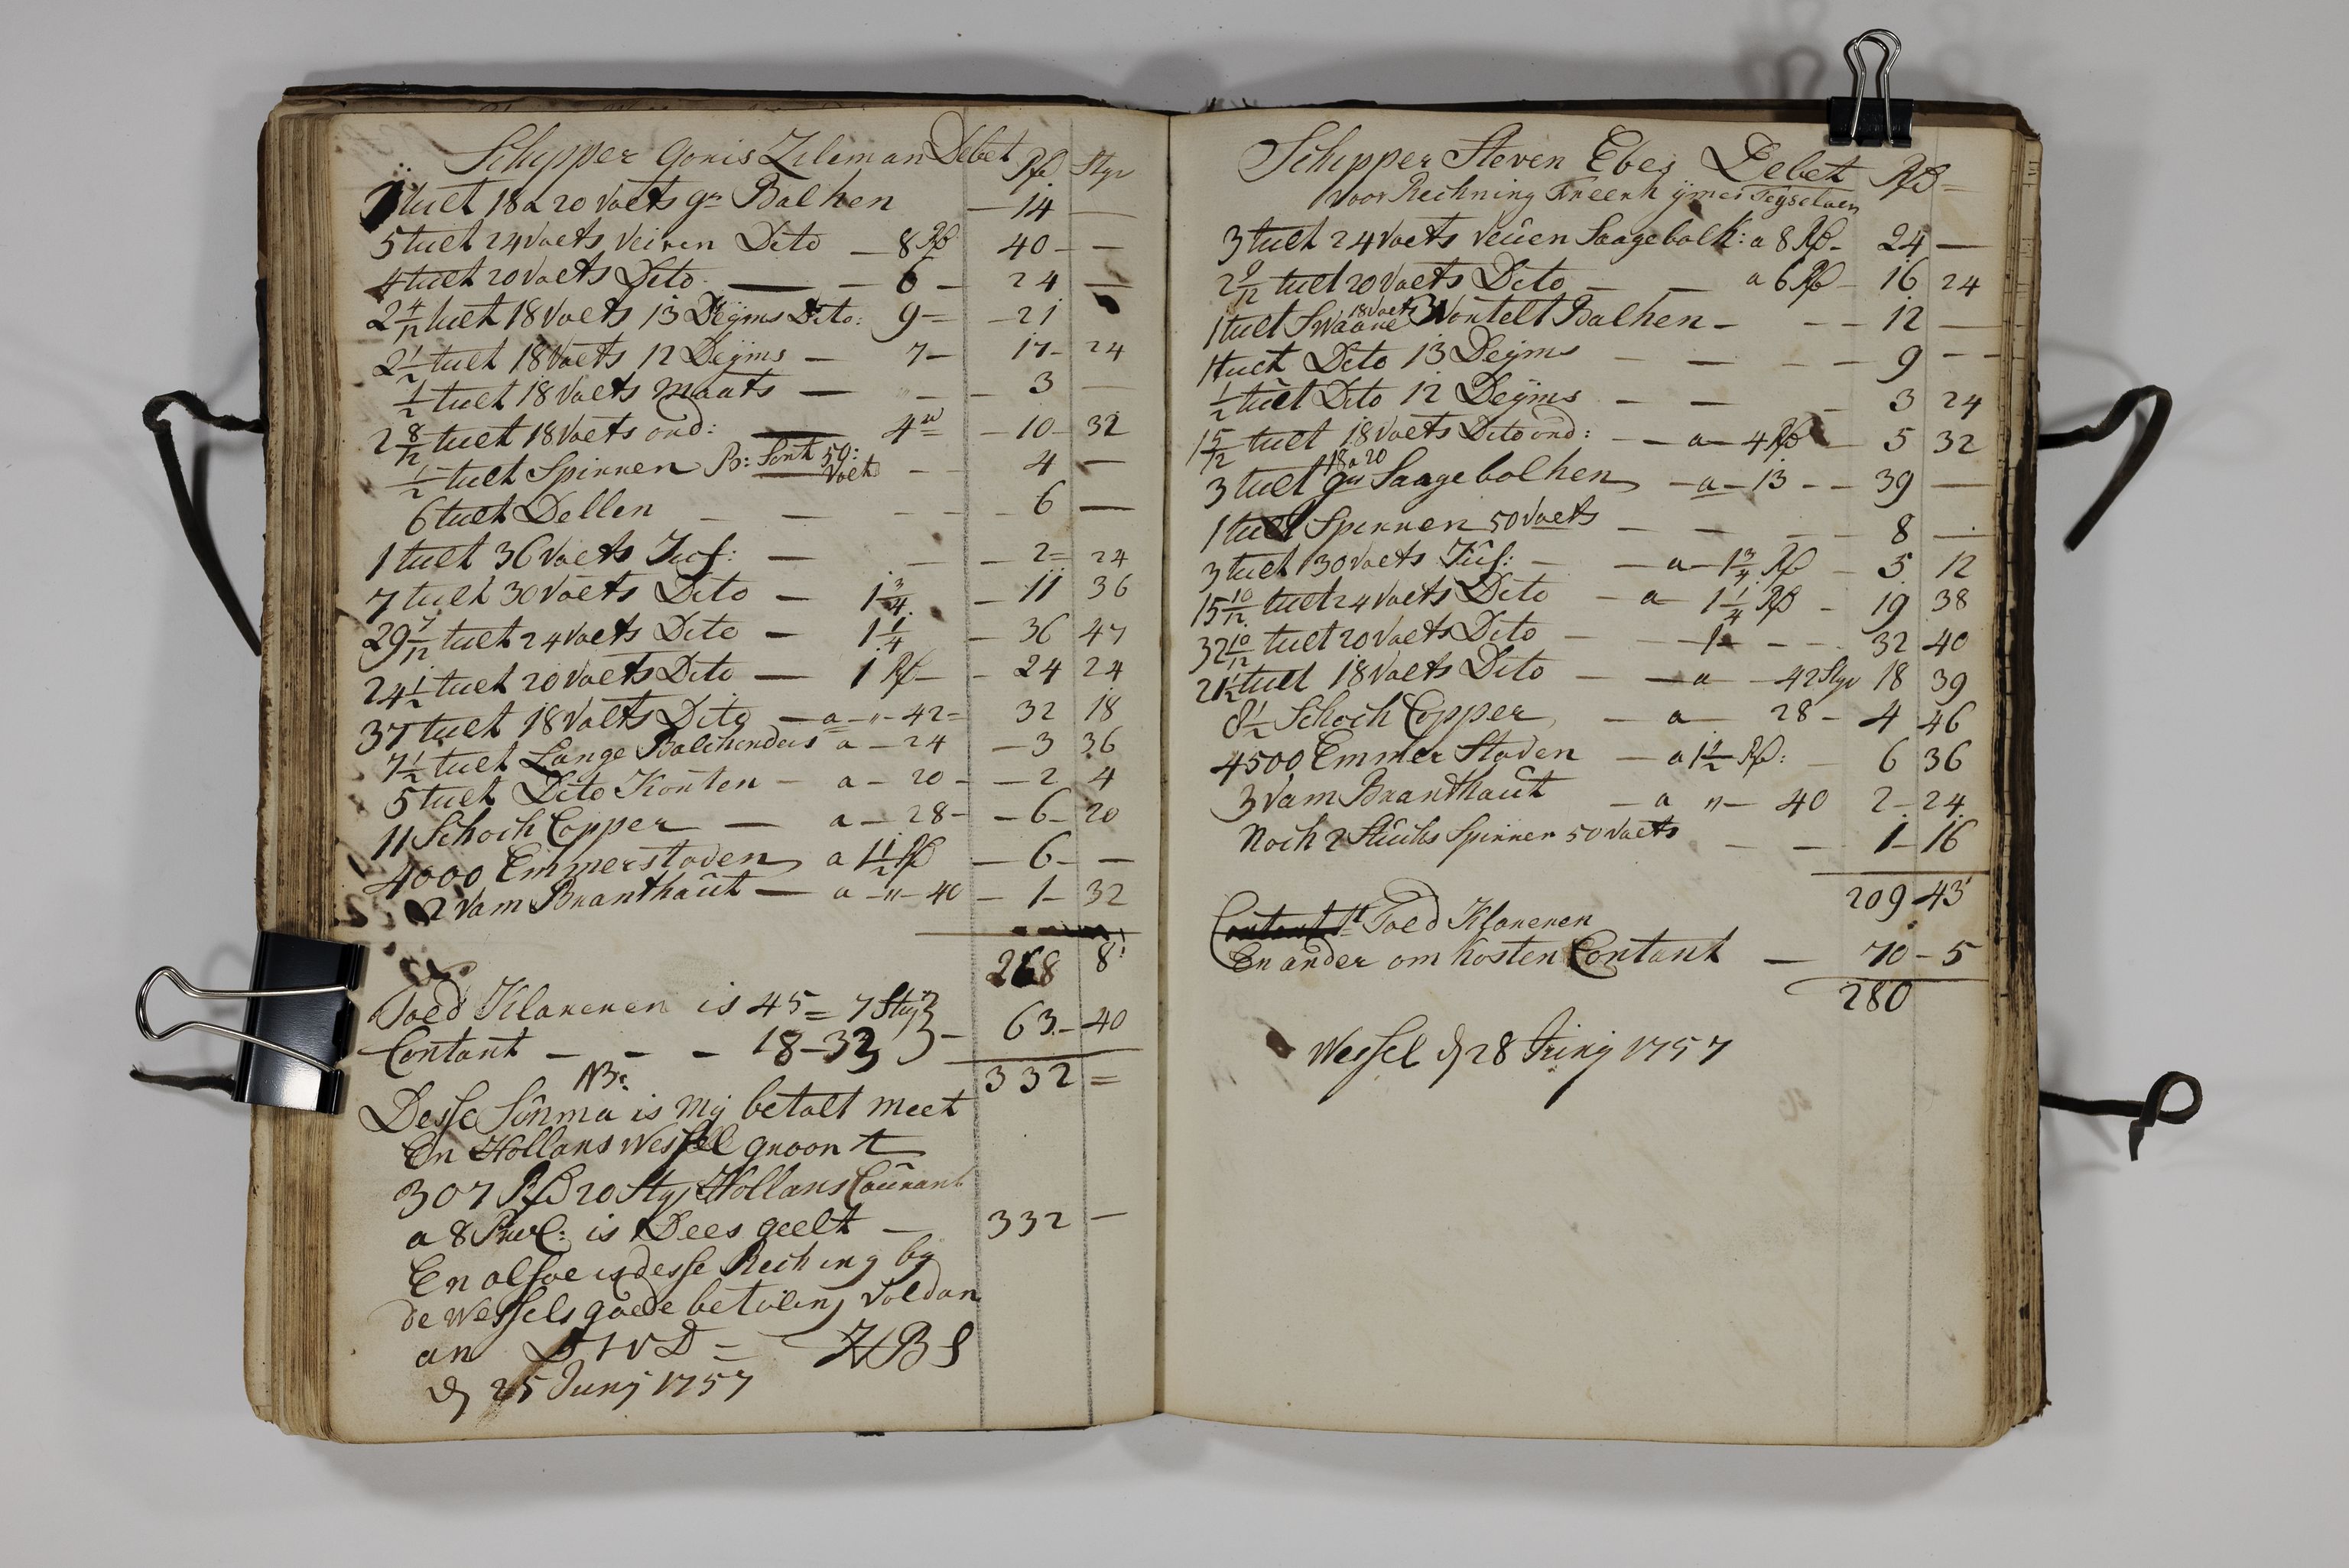 Schipper Gonis Zileman Debet Rd Styr
1 tuelt 18 a 20 Voets gr Balken — 14 —
5 tuelt 24 Voets Veiren Dito — 8 Rd 40 — —
4 tuelt 20 Voets Dito — — 6 — 24 —
2 4/12 tuelt 18 Voets 13 Deijms Dito: 9 = — 21
2 1/2 tuelt 18 Voets 12 Deijms — 7 — 17 - 24
1/2 tuelt 18 Voets maats — — — 3 —
2 8/12 tuelt 18 Voets ond: — 4 — 10 - 32
1/2 tuelt Spirren 50: Voets — — 4 —
6 tuelt Dellen — — — — 6 —
1 tuelt 36 Voets Juf: — — — 2 = 24
7 tuelt 30 Voets Dito — 1 3/4 — 11 36
29 7/12 tuelt 24 Voets Dito — 1 1/4 — 36 47
24 1/2 tuelt 20 Voets Dito — 1 Rd — 24 24
37 tuelt 18 Voets Dito — a — " — 42 = 32 18
7 1/2 tuelt Lange Balckenders a — 24 — 3 36
5 tuelt Dito Konten — a — 20 — — 2 4
11 Schock Copper — a — 28 — — 6 — 20
4000 Emmerstaden a 1 1/2 Rd — 6 — —
2 Vam Branthaut — a — " — 40 — 1 — 32
268 8
Toed Klareren is 45 = 7 Styr
Contant — — — 18 — 33 — 63 — 40
NB: 332 =
Desse Summa is Mij betalt meet
En Hollans Wessel groont
307 Rd 20 Sty Hollans Caurant
a 8 Proc: is Dees geelt — 332 —
En alsoe is desse Reching by
de Wessels goede betaling Voldan
an
d 25 Junij 1757
Schipper Steven Ebes Debet Rd =
Voor Rechning
3 tuelt 24 Voets Veiren Saagebalk: a 8 Rd — 24 —
20 Voets Dito — — a 6 Rd — 16 24
1 tuelt Swaare 18 Voets Wontelt Balken — — — 12 —
1 tuelt Dito 13 Deijms — — — — 9 — —
1/2 tuelt Dito 12 Deijms — — — 3 24
1 5/12 tuelt 18 Voets Dito ond: — — a — 4 Rd — 5 32
3 tuelt 18 a 20 gr Saagebalken — a — 13 — — 39 —
1 tuelt Spirren 50 Voets — — — — 8 —
3 tuelt 30 Voets Juf: — — a — 1 3/4 Rd — 5 12
15 10/12 tuelt 24 Voets Dito — a — 1 1/4 Rd — 19 38
32 10/12 tuelt 20 Voets Dito — — 1 — — — 32 40
21 1/2 tuelt 18 Voets Dito — — a — 42 Styr 18 39
8 1/2 Schock Copper — a — 28 — 4 46
4500 Emmer Staden — a 1 1/2 Rd: — 6 36
3 Vam Branthaut — a " — 40 2 — 24
Noch 2 Stucks Spirren 50 Voets — — 1 — 16
209 - 43
Toed Klareren
En ander om kosten Contant — 70 — 5
280
Wessel d 28 Junij 1757